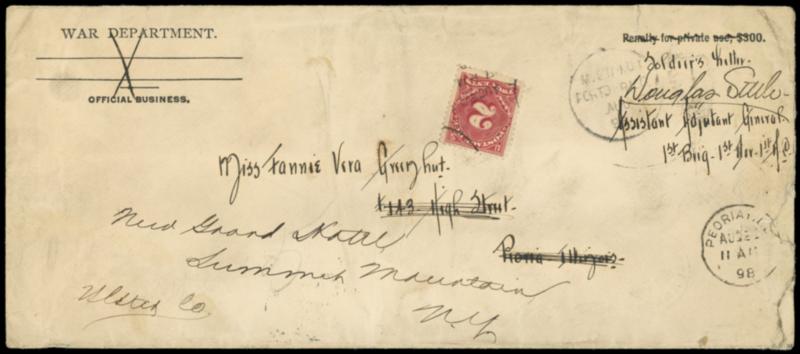 WAR DEPARTMENT.
OFFICIAL BUSINESS.
Penalty for private use, $300.
Soldier's Letter
Douglas
Assistant Adjutant General
1st Brig - 1st Div - 1st
2
Miss Fannie Vera Greenhut.
143 High Street.
Peoria Illinois.
New Grand Hotel
Summit Mountain
Ulster Co.
N.Y.
PEORIA
11 AM
98